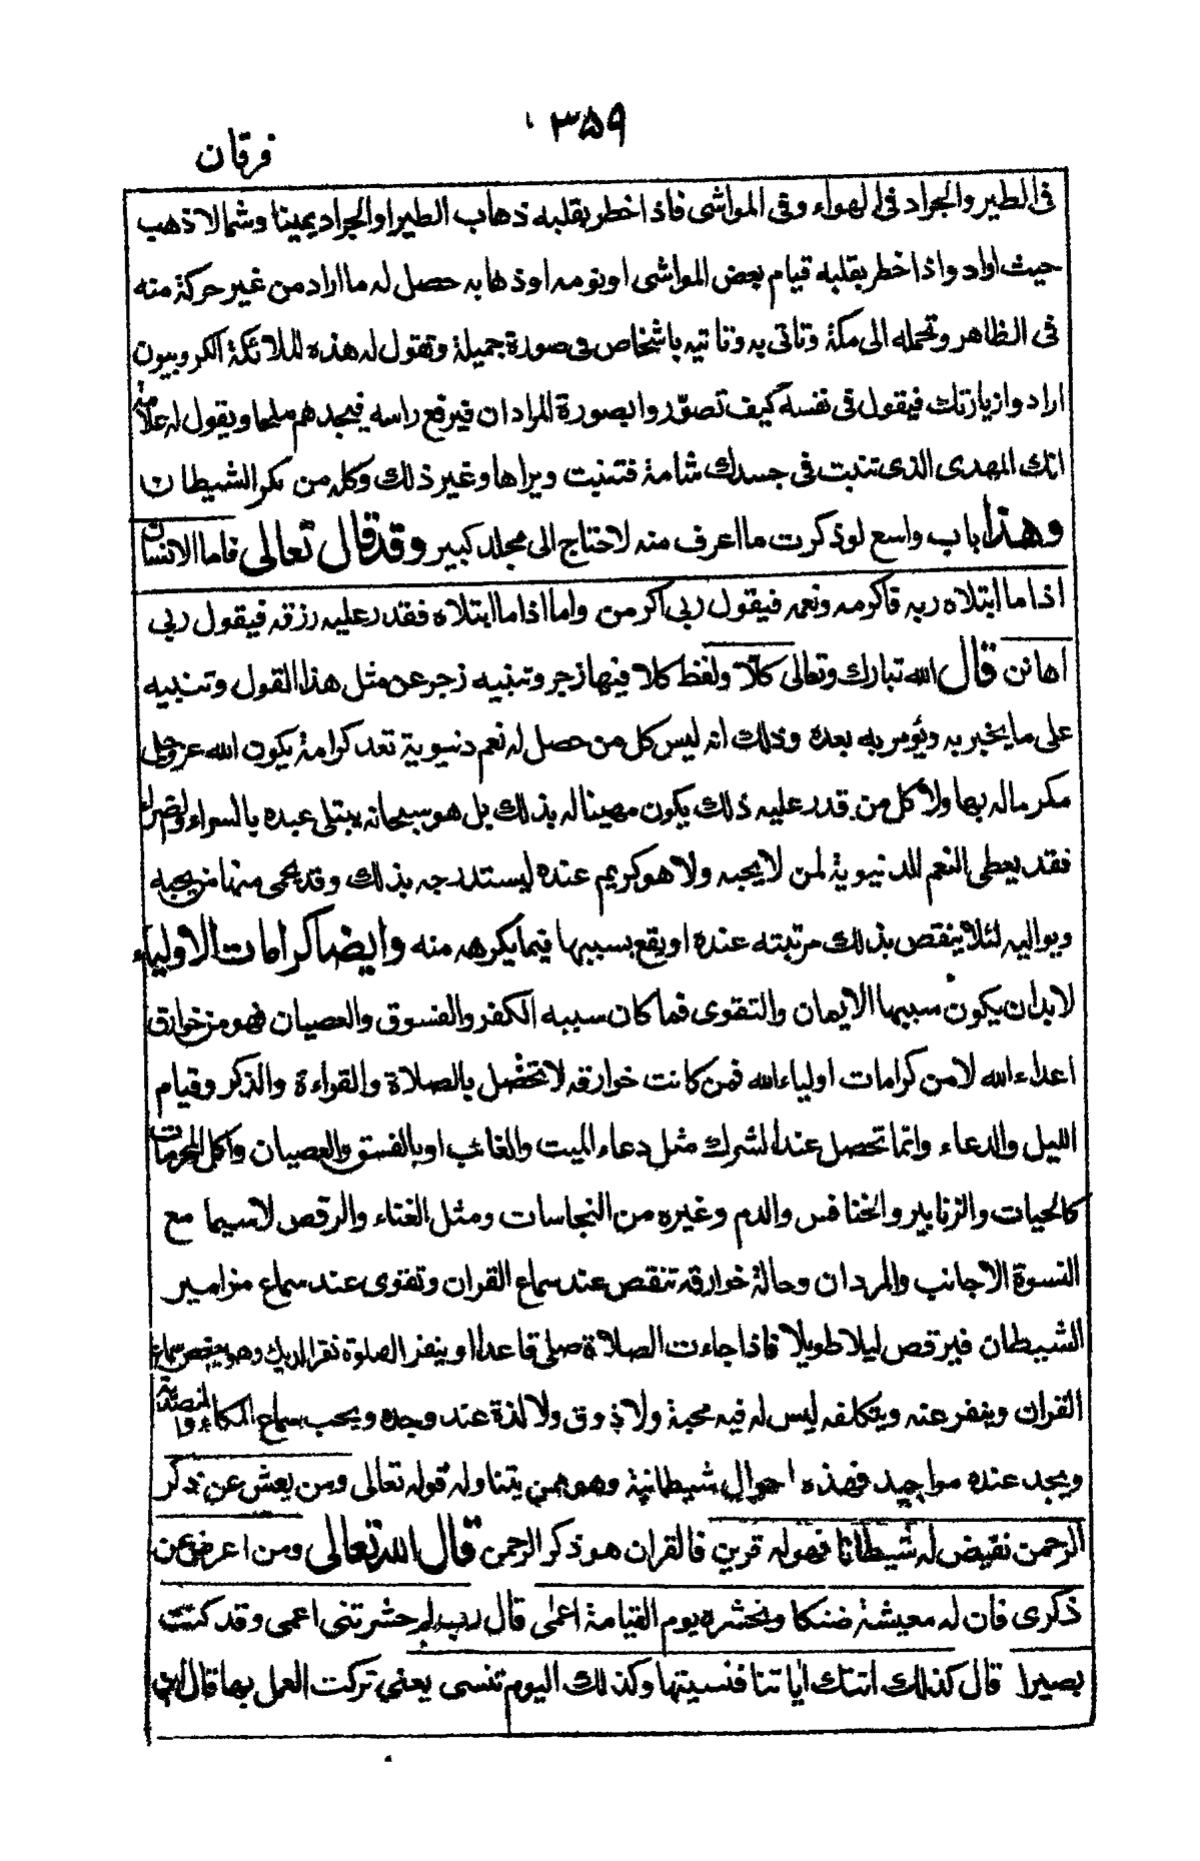 ۳۵۹
فرقان
فى الطير والجراد فى الهواء وفى المواشى فاذا خطر بقلبه ذهاب الطير او الجراد يمينا وشمالا ذهب
حيث اراد واذا خطر بقلبه قيام بعض المواشى او نومه او ذهابه حصل له ما اراد من غير حركة منه
فى الظاهر وتحمله الى مكة وتاتى به وتاتيه باشخاص فى صورة جميلة وتقول له هذه الملائكة الكروبيون
ارادوا زيارتك فيقول فى نفسه كيف تصوّروا بصورة المردان فيرفع راسه فيجدهم بلحا ويقول له علامة
انك المهدى الذى تنبت فى جسدك شامة فتنبت ويراها وغير ذلك وكله من مكر الشيطان
وهذا باب واسع لو ذكرت ما اعرف منه لاحتاج الى مجلد كبير وقد قال تعالى فاما الانسان
اذا ما ابتلاه ربه فاكرمه ونعمه فيقول ربى اكرمن واما اذا ما ابتلاه فقدر عليه رزقه فيقول ربى
اهانن قال الله تبارك وتعالى كلّا ولفظ كلا فيها زجر وتنبيه زجر عن مثل هذا القول وتنبيه
على ما يخبر به ويؤمر به بعده وذلك انه ليس كل من حصل له نعم دنيوية تعد كرامة يكون الله عز وجل
مكرما له بها ولا كل من قدر عليه ذلك يكون مهينا له بذلك بل هو سبحانه يبتلى عبده بالسراء والضراء
فقد يعطى النعم الدنيوية لمن لا يحبه ولا هو كريم عنده ليستدرجه بذلك وقد يحمى منها من يحبه
ويواليه لئلا ينقص بذلك مرتبته عنده او يقع بسببها فيما يكرهه منه وايضا كرامات الاولياء
لا بد ان يكون سببها الايمان والتقوى فما كان سببه الكفر والفسوق والعصيان فهو من خوارق
اعداء الله لا من كرامات اولياء الله فمن كانت خوارقه لا تحصل بالصلاة والقراءة والذكر وقيام
الليل والدعاء وانما تحصل عند الشرك مثل دعاء الميت والغائب او بالفسق والعصيان واكل المحرمات
كالحيات والزنابير والخنافس والدم وغيره من النجاسات ومثل الغناء والرقص لا سيما مع
النسوة الاجانب والمردان وحالة خوارقه تنقص عند سماع القران وتقوى عند سماع مزامير
الشيطان فيرقص ليلا طويلا فاذا جاءت الصلاة صلى قاعدا او ينقر الصلوة نقر الديك وهو يبغض سماع
القران وينفر عنه ويتكلفه ليس له فيه محبة ولا ذوق ولا لذة عند وجده ويحب سماع المكاء والتصدية
ويجد عنده مواجيد فهذه احوال شيطانية وهو ممن يتناوله قوله تعالى ومن يعش عن ذكر
الرحمن نقيض له شيطانا فهو له قرين فالقران هو ذكر الرحمن قال الله تعالى ومن اعرض عن
ذكرى فان له معيشة ضنكا ونحشره يوم القيامة اعمى قال رب لم حشرتنى اعمى وقد كنت
بصيرا قال كذلك اتتك اياتنا فنسيتها وكذلك اليوم تنسى يعنى تركت العمل بها قال ابن